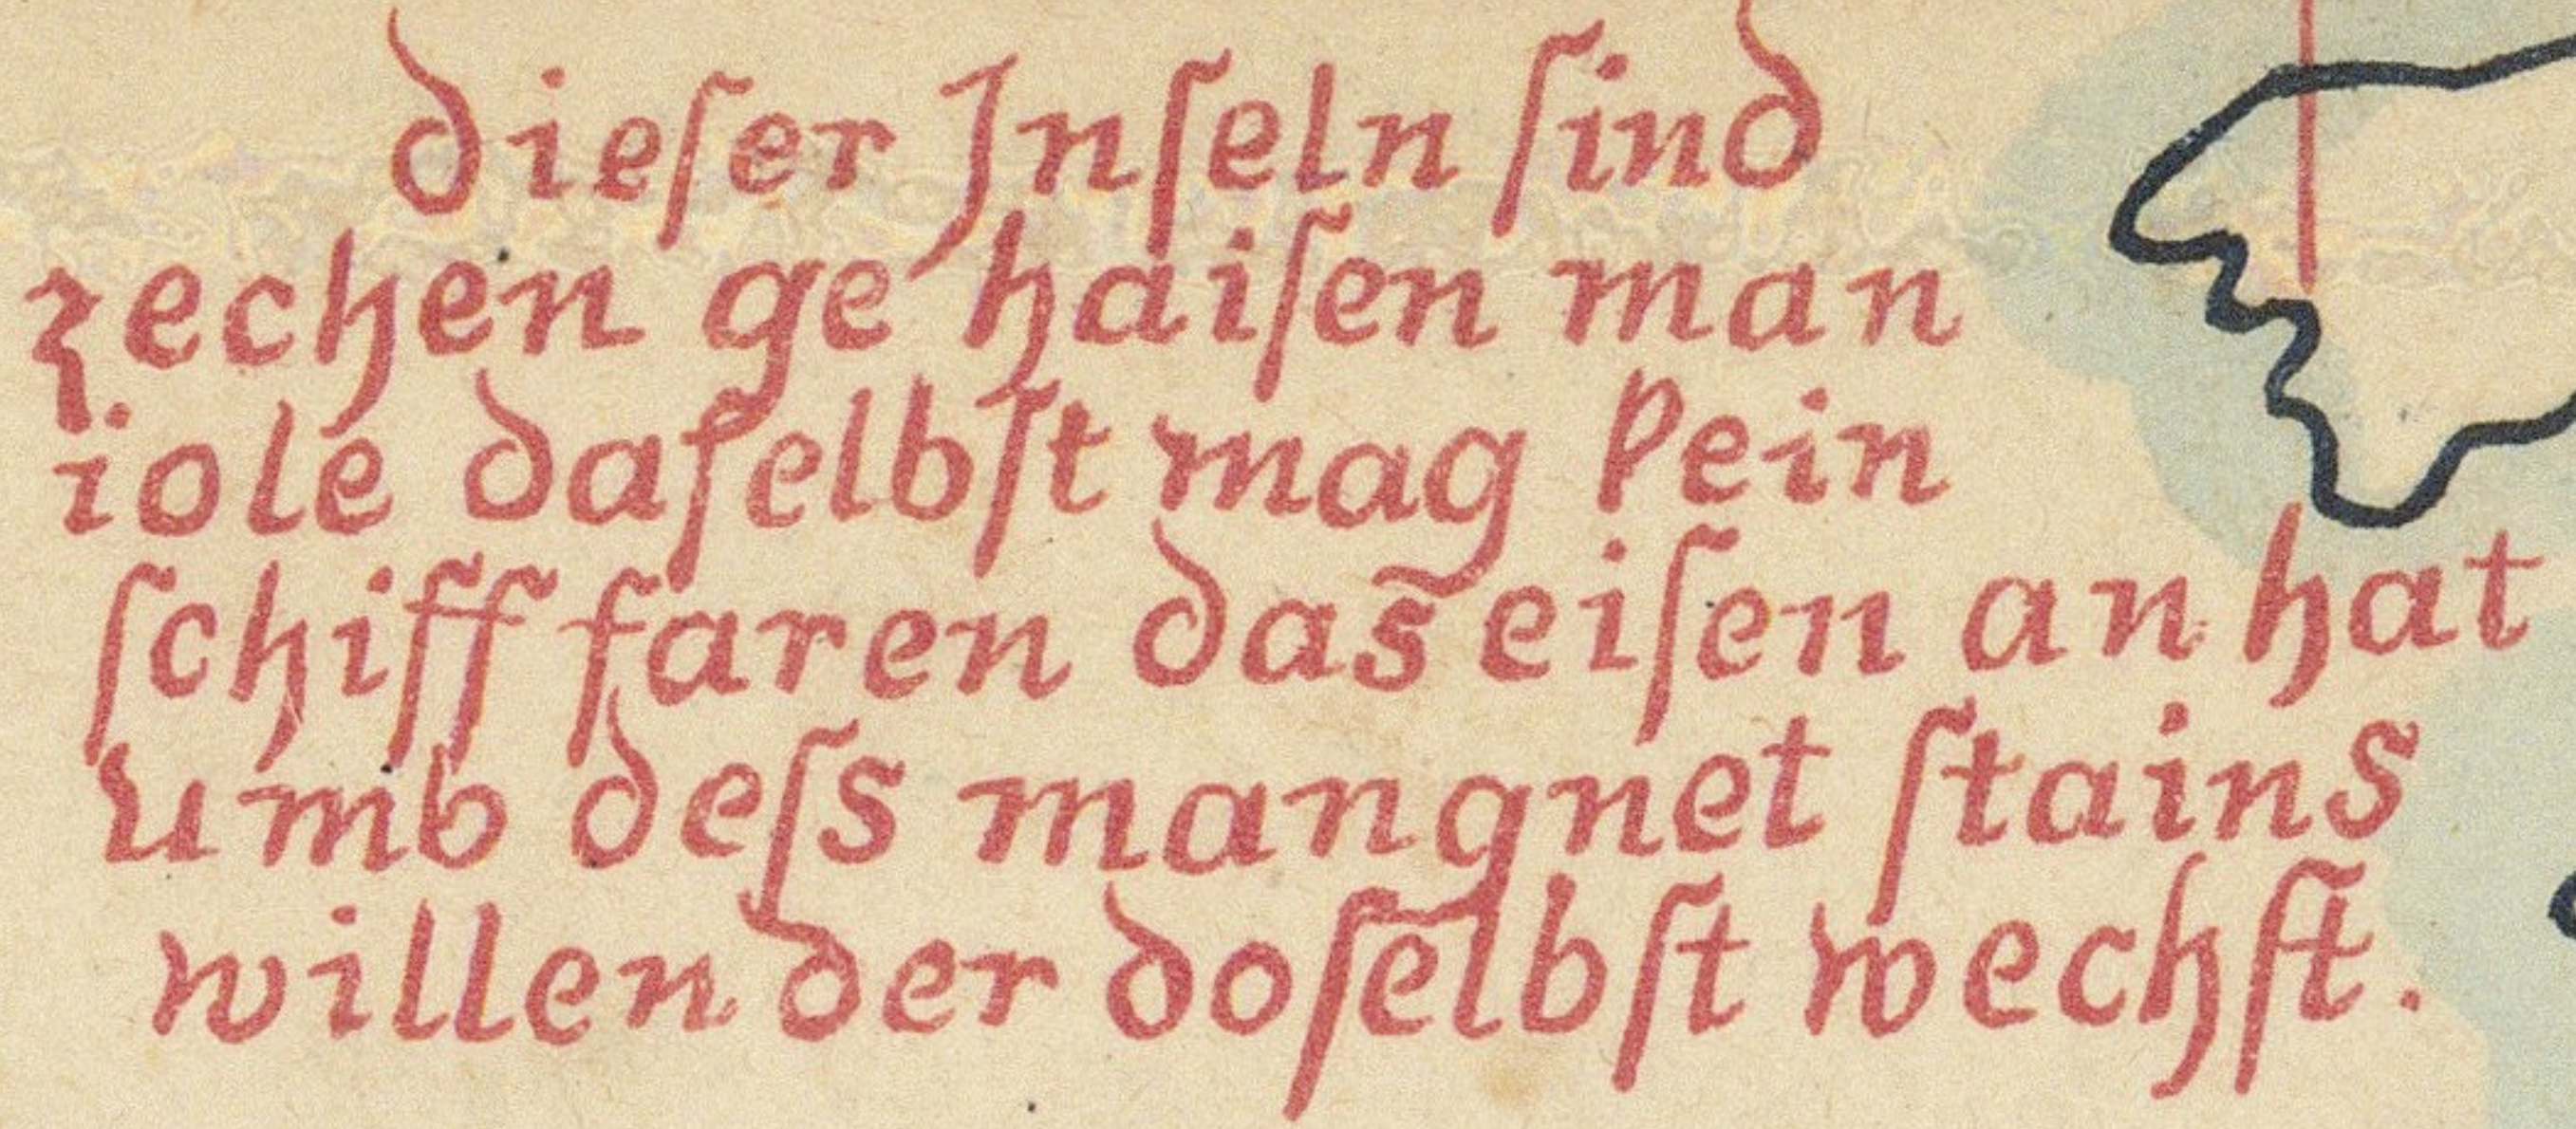 dieſer Jnſeln ſind
zechen ge haiſen man
iole daſelbſt mag kein
ſchiff faren das̄ eiſen an hat
umb deſs mangnet ſtains
willen der doſelbſt wechſt.